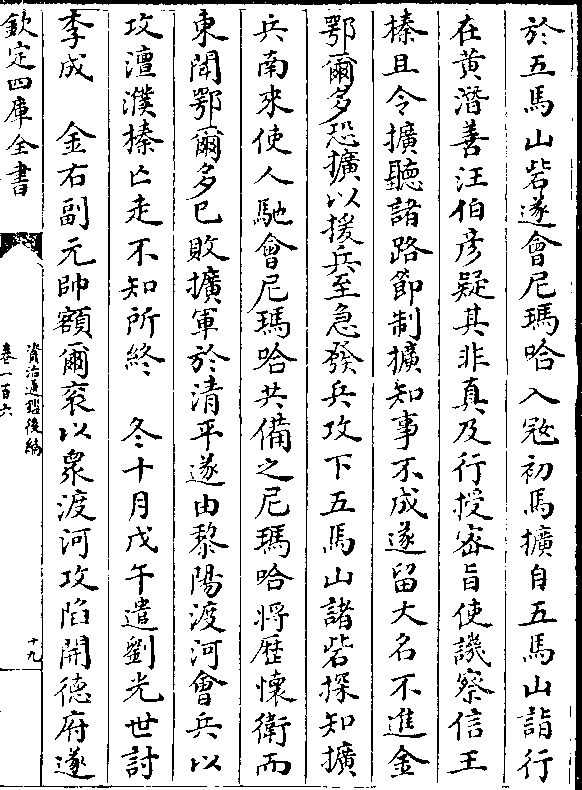 於五馬山砦遂會尼瑪哈入冦初馬擴自五馬山詣行
在黄潛善汪伯彦疑其非真及行授密旨使譏察信王
榛且令擴聽諸路節制擴知事不成遂留大名不進金
鄂爾多恐擴以援兵至急發兵攻下五馬山諸砦探知擴
兵南來使人馳會尼瑪哈共備之尼瑪哈將歴懷衛而
東聞鄂爾多已敗擴軍於清平遂由黎陽渡河會兵以
攻澶濮榛亡走不知所終　冬十月戊午遣劉光世討
李成　金右副元帥額爾衮以衆渡河攻陷開德府遂
欽定四庫全書
資治通鑑後編
卷一百六
十九